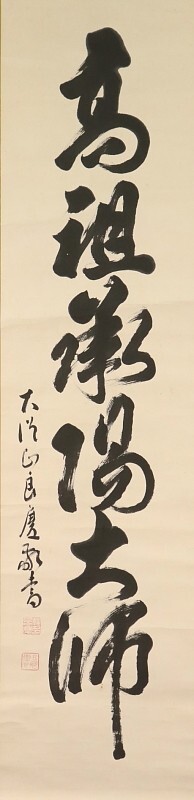 高祖承陽大師
山良慶敬書